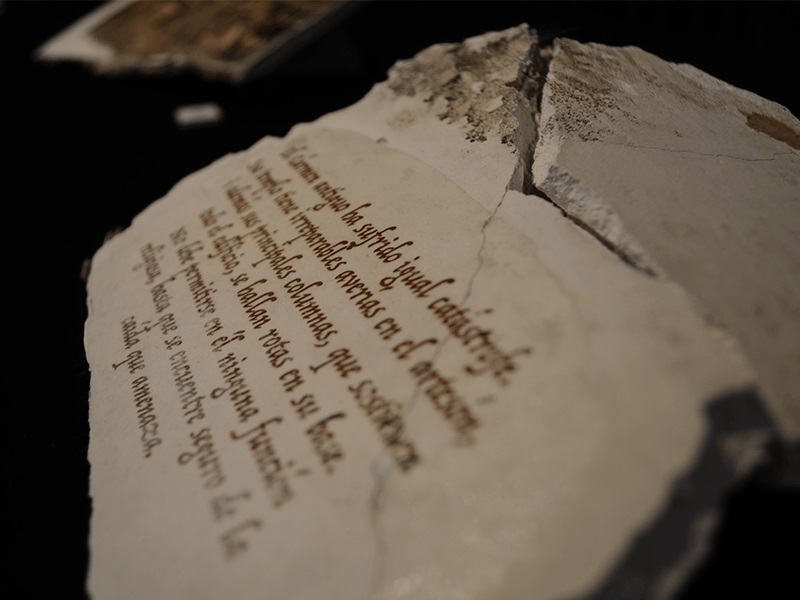 El Carmen antiguo ha sufrido igual catástrofe.
Su templo tiene irreparables averías en el artesón,
todas sus principales columnas, que sostienen
todo el edificio, se hallan rotas en su base.
No debe permitirse en él ninguna función
religiosa, hasta que se encuentre seguro de la
caída que amenaza.